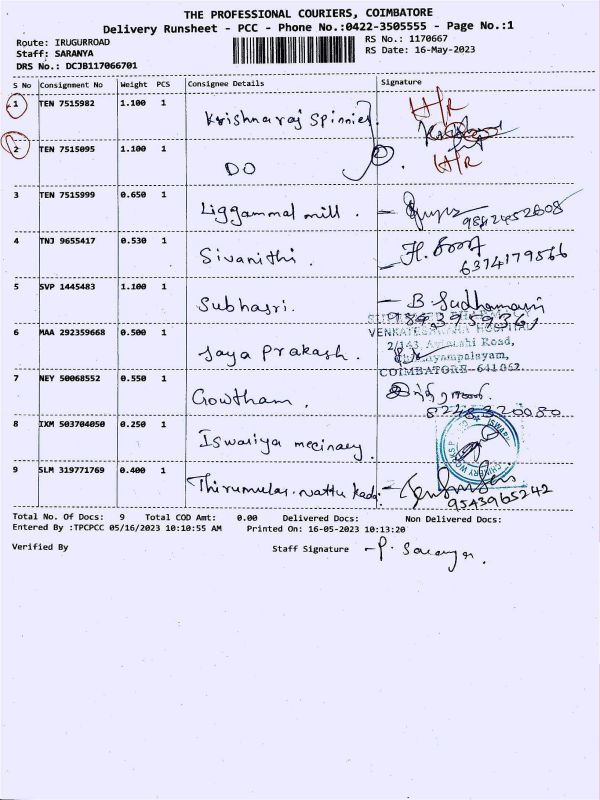 THE PROFESSIONAL COURIERS, COIMBATORE
Delivery Runsheet - PCC - Phone No.:0422-3505555 - Page No.:1
Route: IRUGURROAD
Staff: SARANYA
DRS No.: DCJB117066701
RS No.: 1170667
RS Date: 16-May-2023
S No Consignment No Weight PCS Consignee Details Signature
1 TEN 7515982 1.100 1 Krishnaraj Spinnies H/R
2 TEN 7515095 1.100 1 DO H/R
3 TEN 7515999 0.650 1 Liggammal mill. 9842452608
4 TNJ 9655417 0.530 1 Sivanithi. 6374179566
5 SVP 1445483 1.100 1 Subhasri. B. Sudhamani
6 MAA 292359668 0.500 1 Jaya Prakash.
VENKATESWARA HOSPITAL
2/143, Avinashi Road,
COIMBATORE-641062
7 NEY 50068552 0.550 1 Gowtham. 8248320080
8 IXM 503704050 0.250 1 Iswariya
9 SLM 319771769 0.400 1 Thirumulas. nattu 9543965242
Total No. Of Docs: 9 Total COD Amt: 0.00 Delivered Docs: Non Delivered Docs:
Entered By :TPCPCC 05/16/2023 10:10:55 AM Printed On: 16-05-2023 10:13:20
Verified By Staff Signature